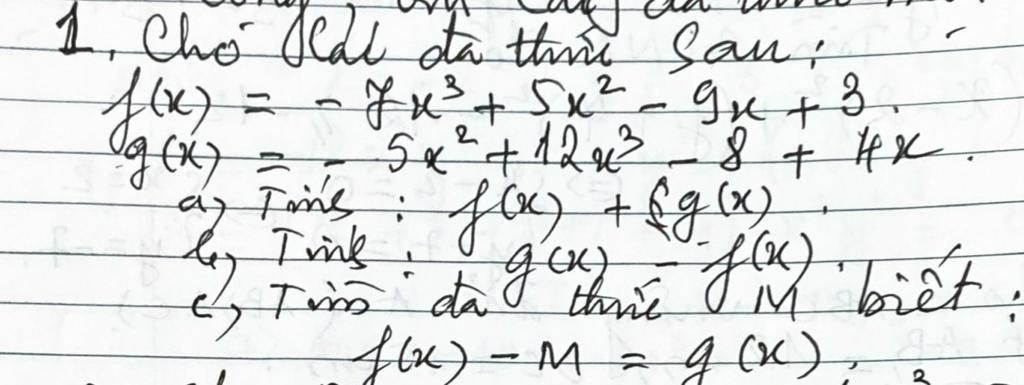 1, Cho các đa thức sau:
f(x) = - 7x³ + 5x² - 9x + 3.
g(x) = - 5x² + 12x³ - 8 + 4x.
a, Tính: f(x) + g(x).
b, Tính: g(x) - f(x).
c, Tìm đa thức M biết:
f(x) - M = g(x).